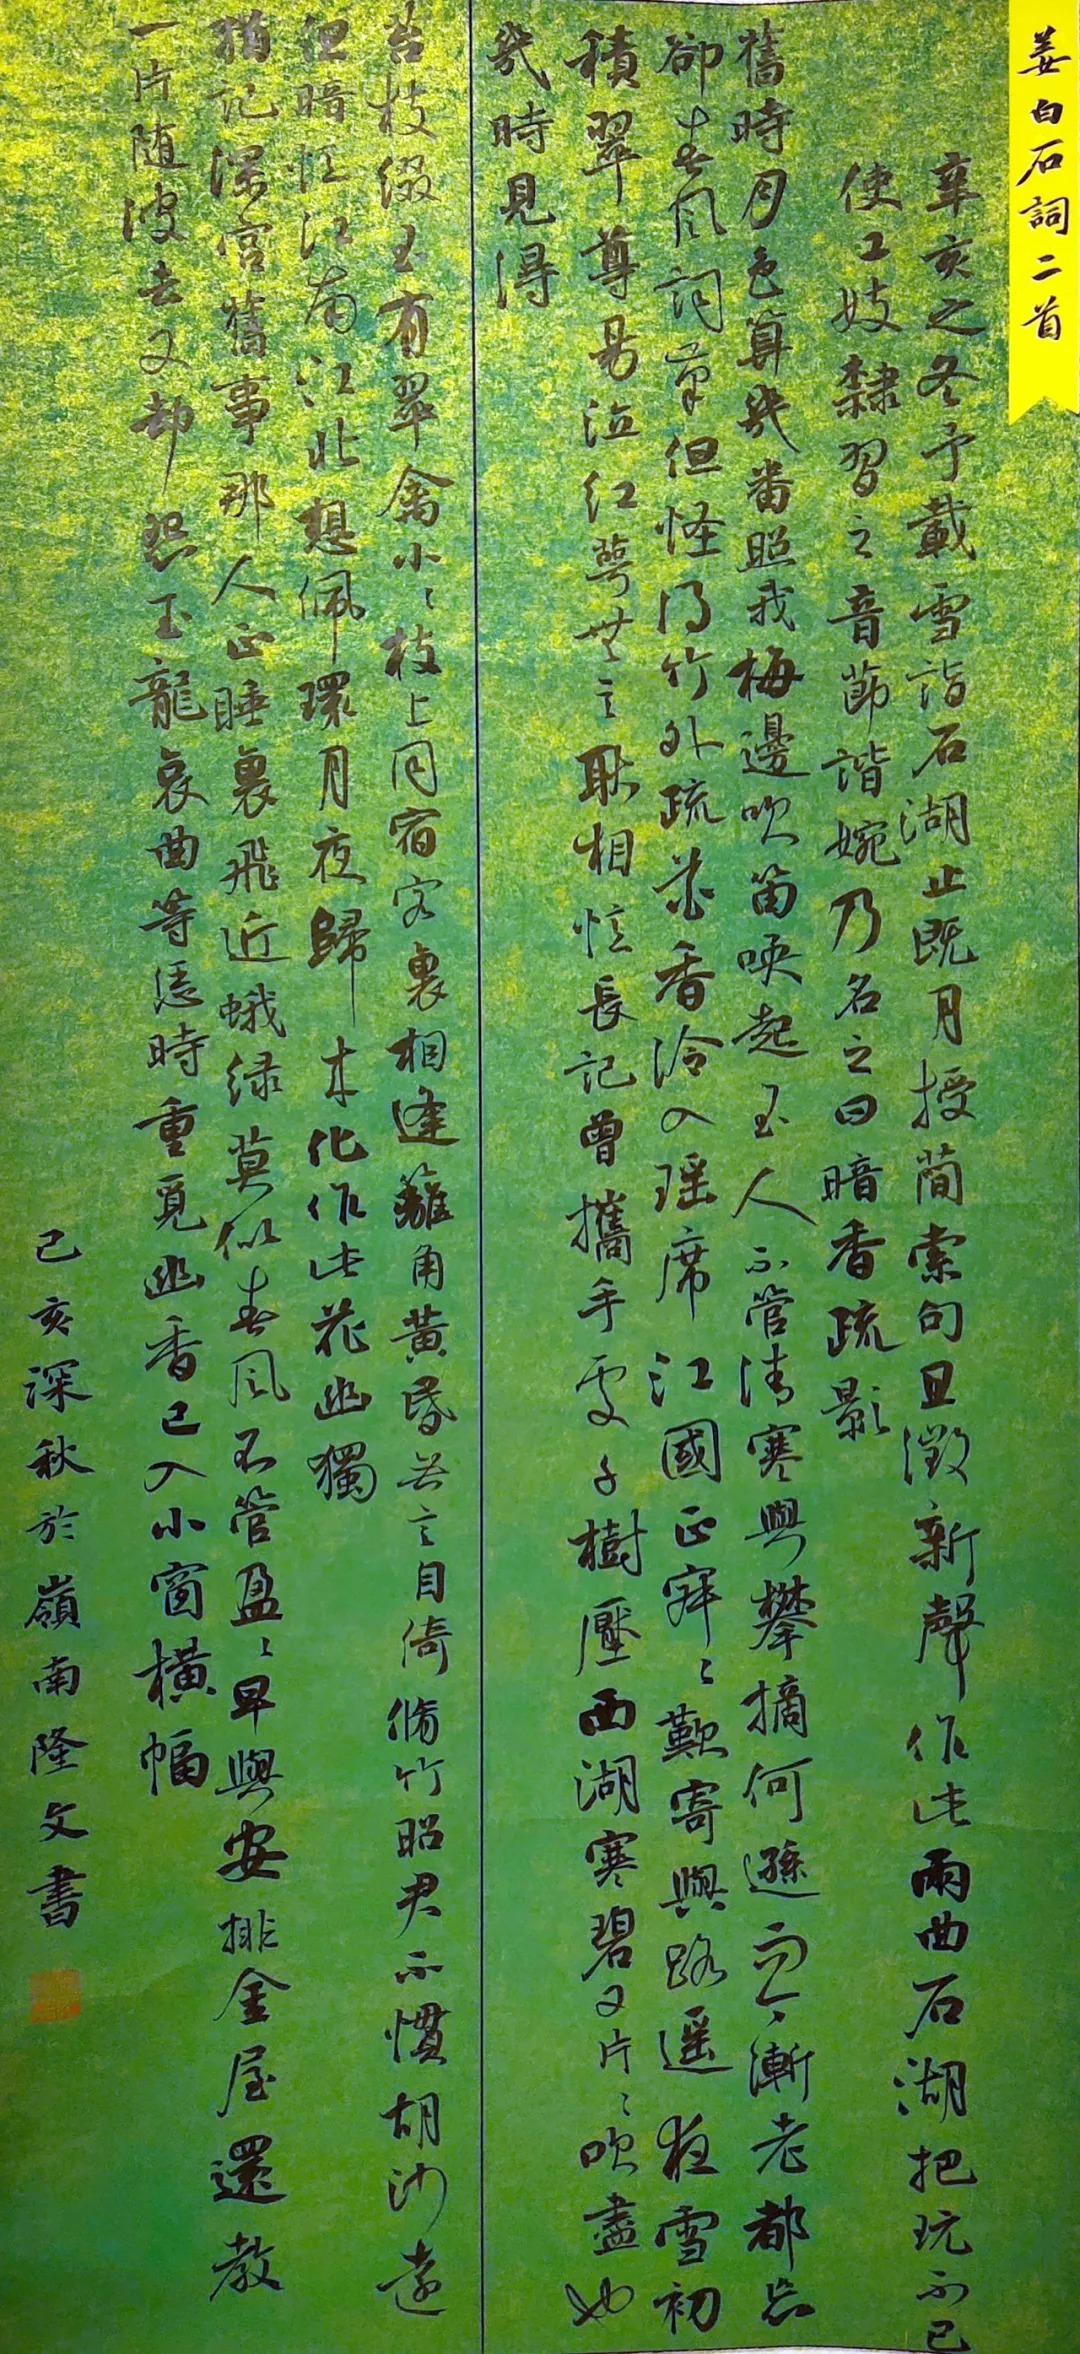 姜白石詞二首
辛亥之冬予載雪詣石湖止既月授簡索句且徵新聲作此兩曲石湖把玩不已
使工妓隸習之音節諧婉乃名之曰暗香疏影
舊時月色算幾番照我梅邊吹笛喚起玉人不管清寒與攀摘何遜而今漸老都忘
卻春風詞筆但怪得竹外疏花香冷入瑶席江國正寂〻歎寄與路遥夜雪初
積翠尊易泣红萼無言耿相憶長記曾攜手處千樹壓西湖寒碧又片〻吹盡也
幾時見得
苔枝缀玉有翠禽小〻枝上同宿客裏相逢籬角黄昏無言自倚脩竹昭君不慣胡沙遠
但暗憶江南江北想佩環月夜歸來化作此花幽獨
猶記深宫舊事那人正睡裏飛近蛾绿莫似春風不管盈〻早與安排金屋還教
一片随波去又却怨玉龍哀曲等恁時重覓幽香已入小窗橫幅
己亥深秋於嶺南隆文書